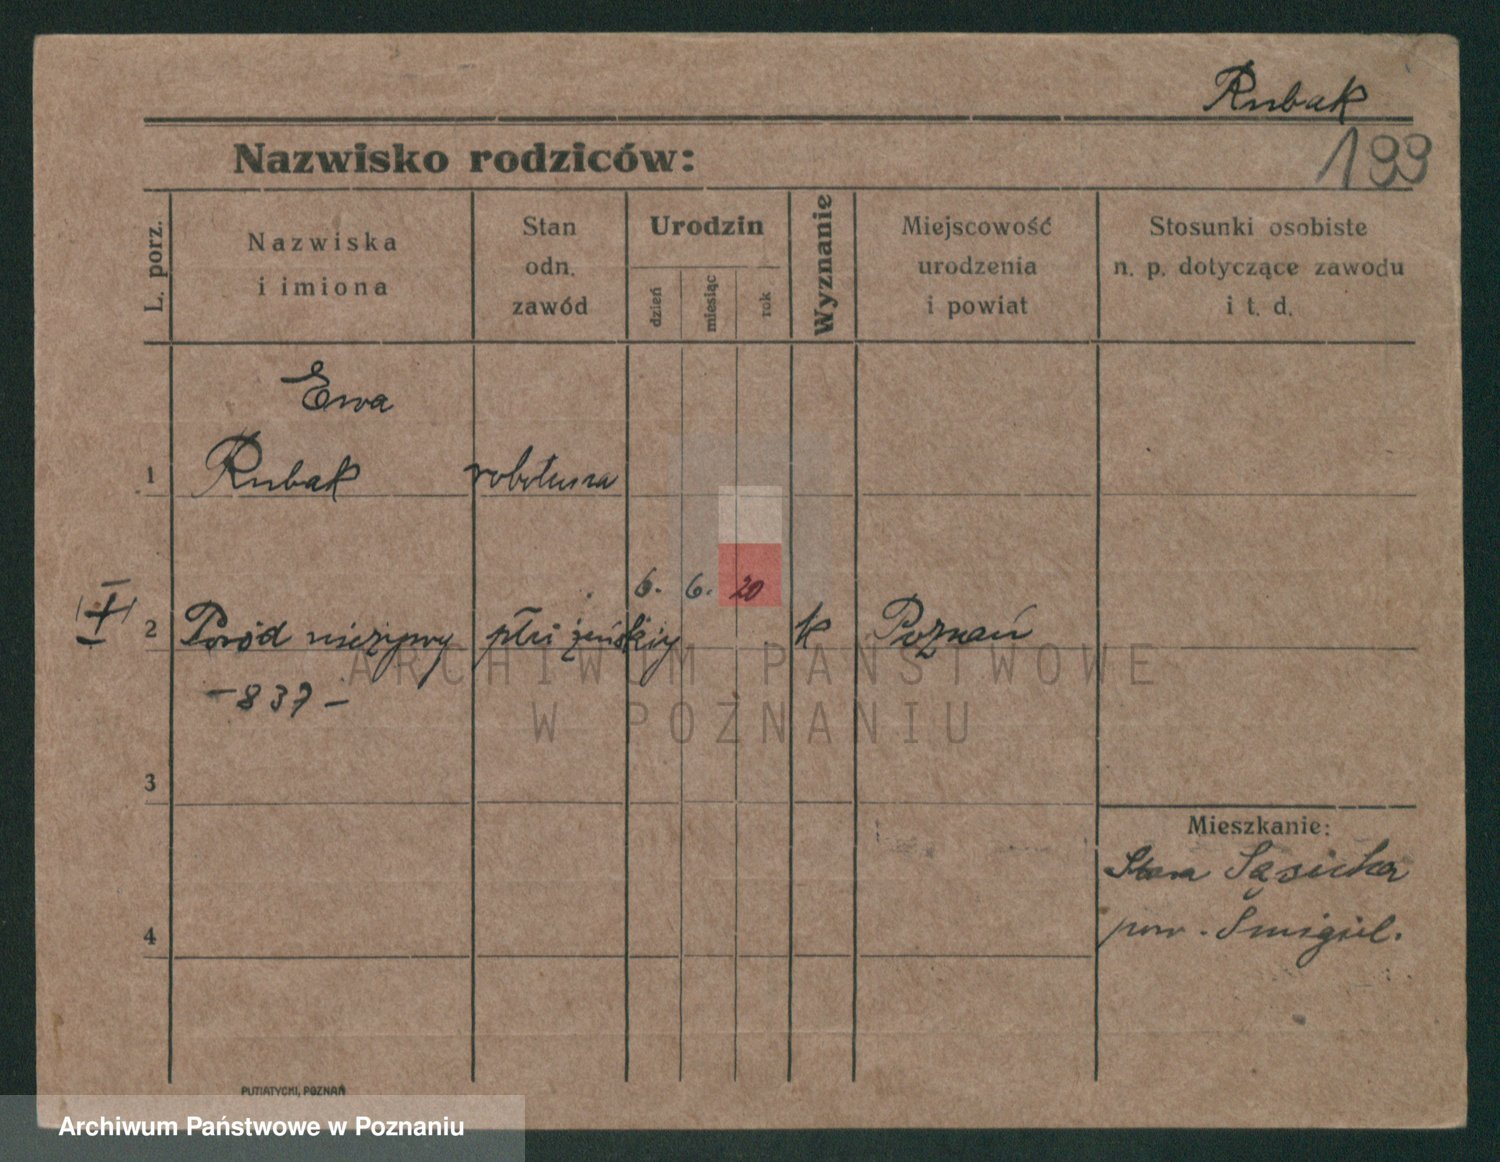 Rubak
199
Nazwisko rodziców:
L. porz.
Nazwiska
i imiona
Stan
odn.
zawód
Urodzin
dzień
miesiąc
rok
Wyznanie
Miejscowość
urodzenia
i powiat
Stosunki osobiste
n. p. dotyczące zawodu
i t. d.
Ewa
1 Rubak
6. 6. 20
2 Poród nieżywy płci żeńskiy k Poznań
- 837 -
3
Mieszkanie:
Stara
pow. Smigiel.
4
PUTIATYCKI, POZNAŃ
ARCHIWUM PAŃSTWOWE
W POZNANIU
Archiwum Państwowe w Poznaniu